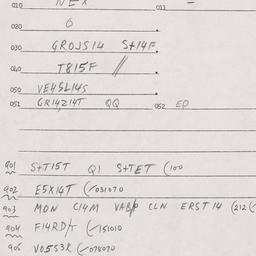 010 NEX 011 -
020 6
030 GROJS14 St14F
040 T815F //
050 VE45L14S
051 GR14Z14T QQ 052 EP
901 S+T15T Q1 S+TET (100
902 E5X14T (~031070
903 MON C14M VAB CLN ERST 14 (212 (
904 F14RD/t (~151010
905 VO5S3R (~078070